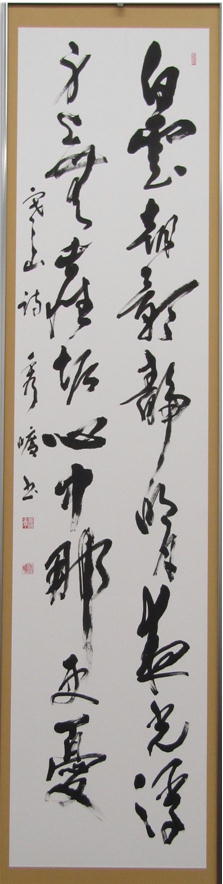 白雲朝影靜明月夜光浮
身上無塵垢心中那更憂
寒山詩 秀 書